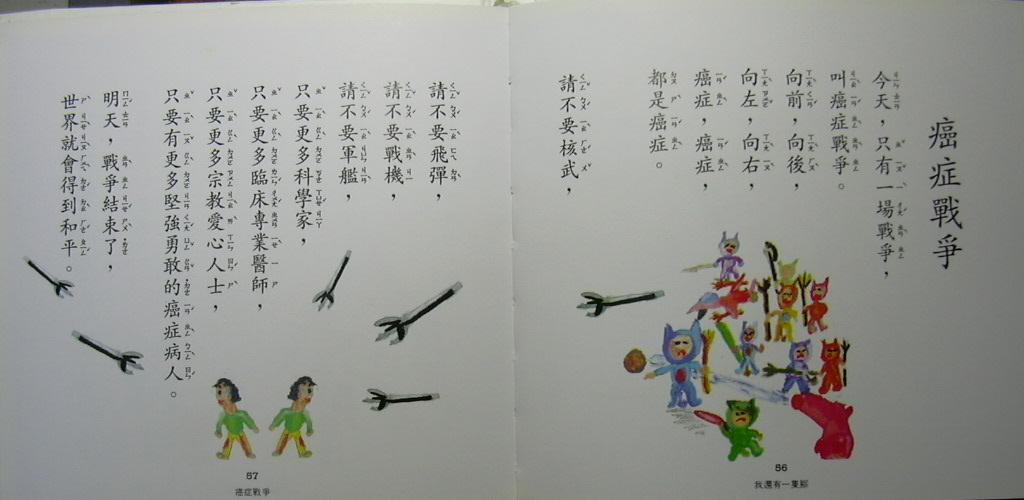 癌症戰爭
今天，只有一場戰爭，
叫癌症戰爭。
向前，向後，
向左，向右，
癌症，癌症，
都是癌症。
請不要核武，
56
我還有一隻腳
請不要飛彈，
請不要戰機，
請不要軍艦，
只要更多科學家，
只要更多臨床專業醫師，
只要更多宗教愛心人士，
只要有更多堅強勇敢的癌症病人。
明天，戰爭結束了，
世界就會得到和平。
57
癌症戰爭